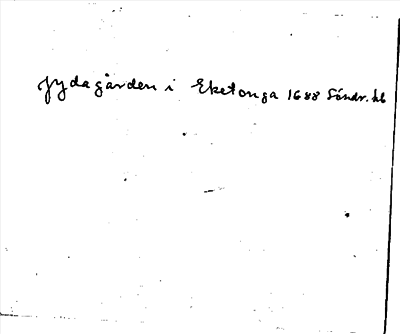 Jydagården i Eketonga 1688 Söndr. kb